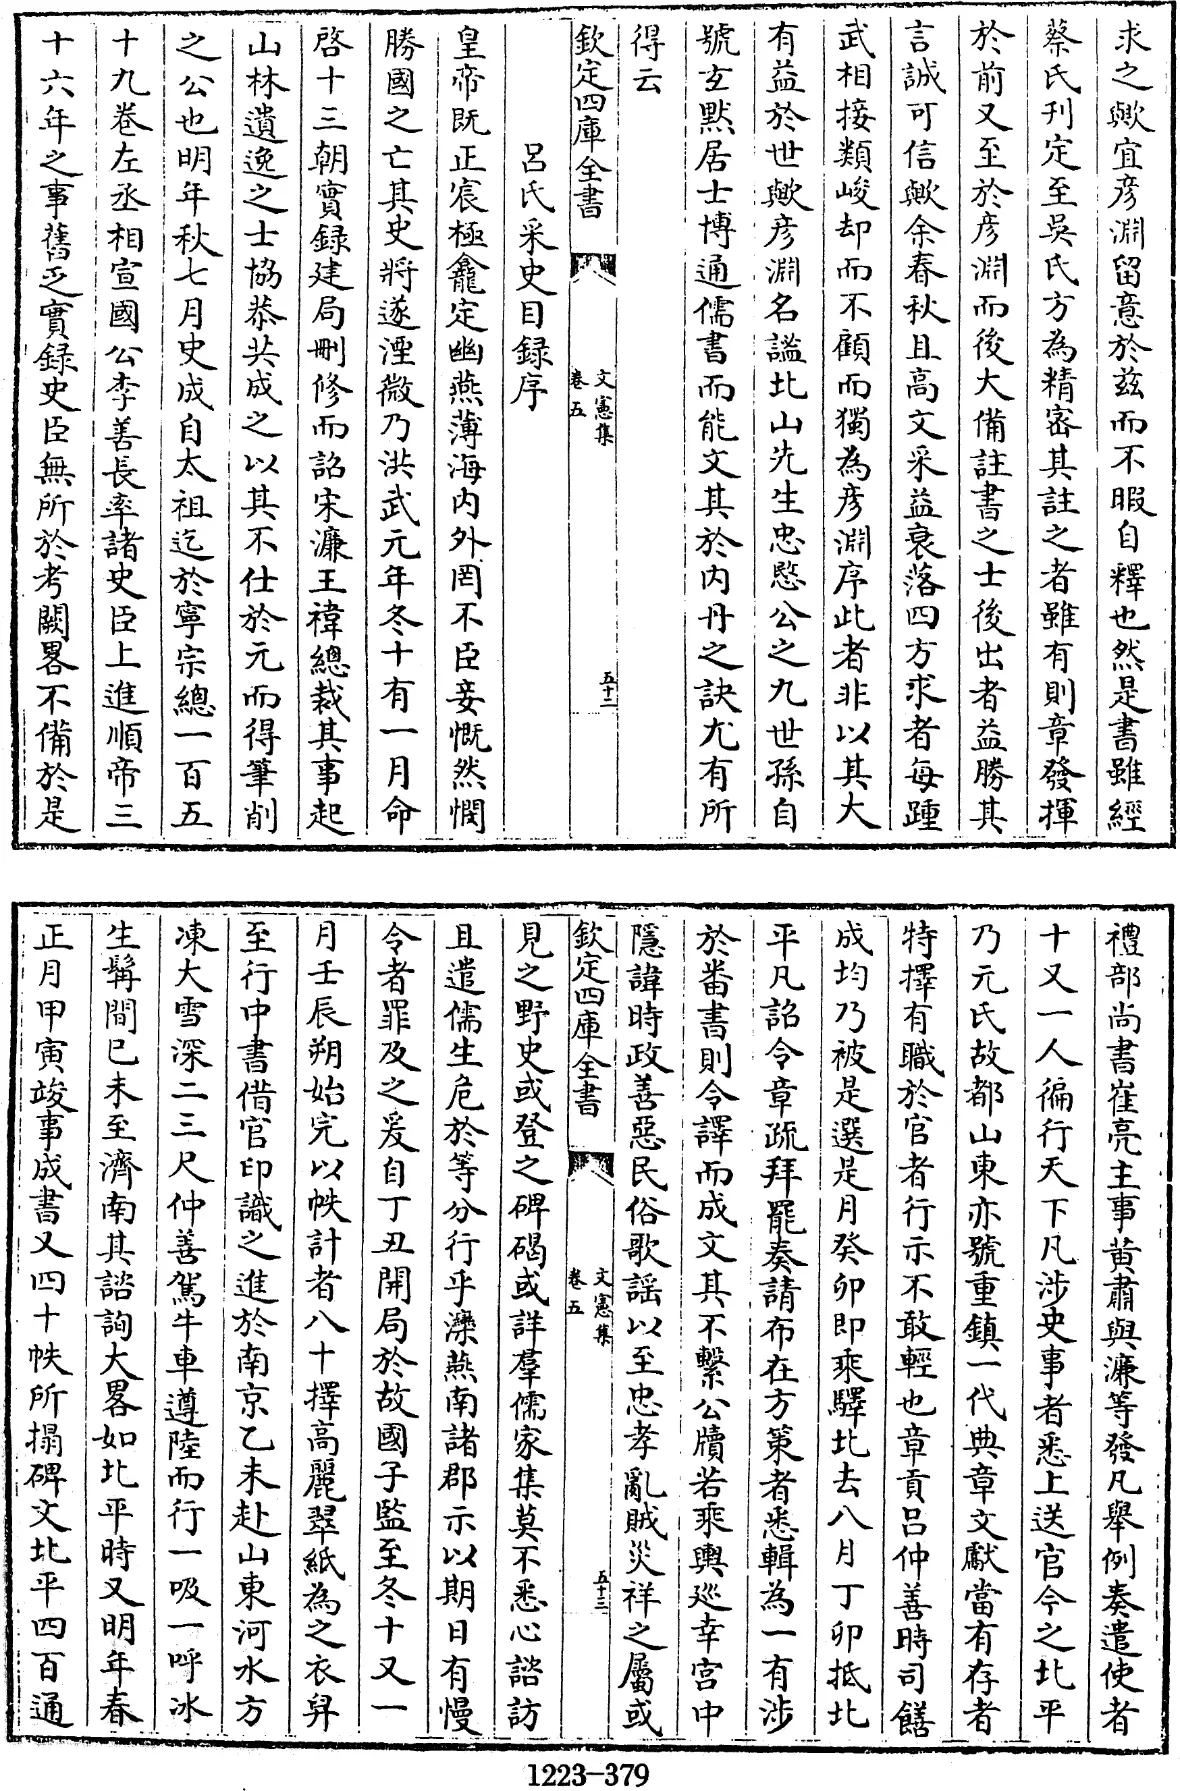 求之歟宜彦淵留意於兹而不暇自釋也然是書雖經
蔡氏刋定至吳氏方為精密其註之者雖有則章發揮
於前又至於彦淵而後大備註書之士後出者益勝其
言誠可信歟余春秋且高文采益衰落四方求者每踵
武相接類峻却而不顧而獨為彦淵序此者非以其大
有益於世歟彦淵名謐北山先生忠愍公之九世孫自
號玄黙居士博通儒書而能文其於内丹之訣尤有所
得云
欽定四庫全書
文憲集
卷五
五十二
吕氏采史目録序
皇帝既正宸極龕定幽燕薄海内外罔不臣妾慨然憫
勝國之亡其史將遂湮微乃洪武元年冬十有一月命
啓十三朝實録建局刪修而詔宋濂王禕總裁其事起
山林遺逸之士協恭共成之以其不仕於元而得筆削
之公也明年秋七月史成自太祖迄於寧宗總一百五
十九巻左丞相宣國公李善長率諸史臣上進順帝三
十六年之事舊乏實録史臣無所於考闕畧不備於是
禮部尚書崔亮主事黄肅與濂等發凡舉例奏遣使者
十又一人徧行天下凡涉史事者悉上送官今之北平
乃元氏故都山東亦號重鎮一代典章文獻當有存者
特擇有職於官者行示不敢輕也章貢吕仲善時司饍
成均乃被是選是月癸卯即乘驛北去八月丁卯抵北
平凡詔令章疏拜罷奏請布在方策者悉輯為一有涉
於畨書則令譯而成文其不繫公牘若乘輿廵幸宫中
隱諱時政善惡民俗歌謡以至忠孝亂賊災祥之屬或
欽定四庫全書
文憲集
卷五
五十三
見之野史或登之碑碣或詳羣儒家集莫不悉心諮訪
且遣儒生危於等分行乎灤燕南諸郡示以期日有慢
令者罪及之爰自丁丑開局於故國子監至冬十又一
月壬辰朔始完以帙計者八十擇高麗翠紙為之衣舁
至行中書借官印識之進於南京乙未赴山東河水方
凍大雪深二三尺仲善駕牛車遵陸而行一吸一呼冰
生髯間巳未至濟南其諮詢大畧如北平時又明年春
正月甲寅竣事成書又四十帙所搨碑文北平四百通
1223-379